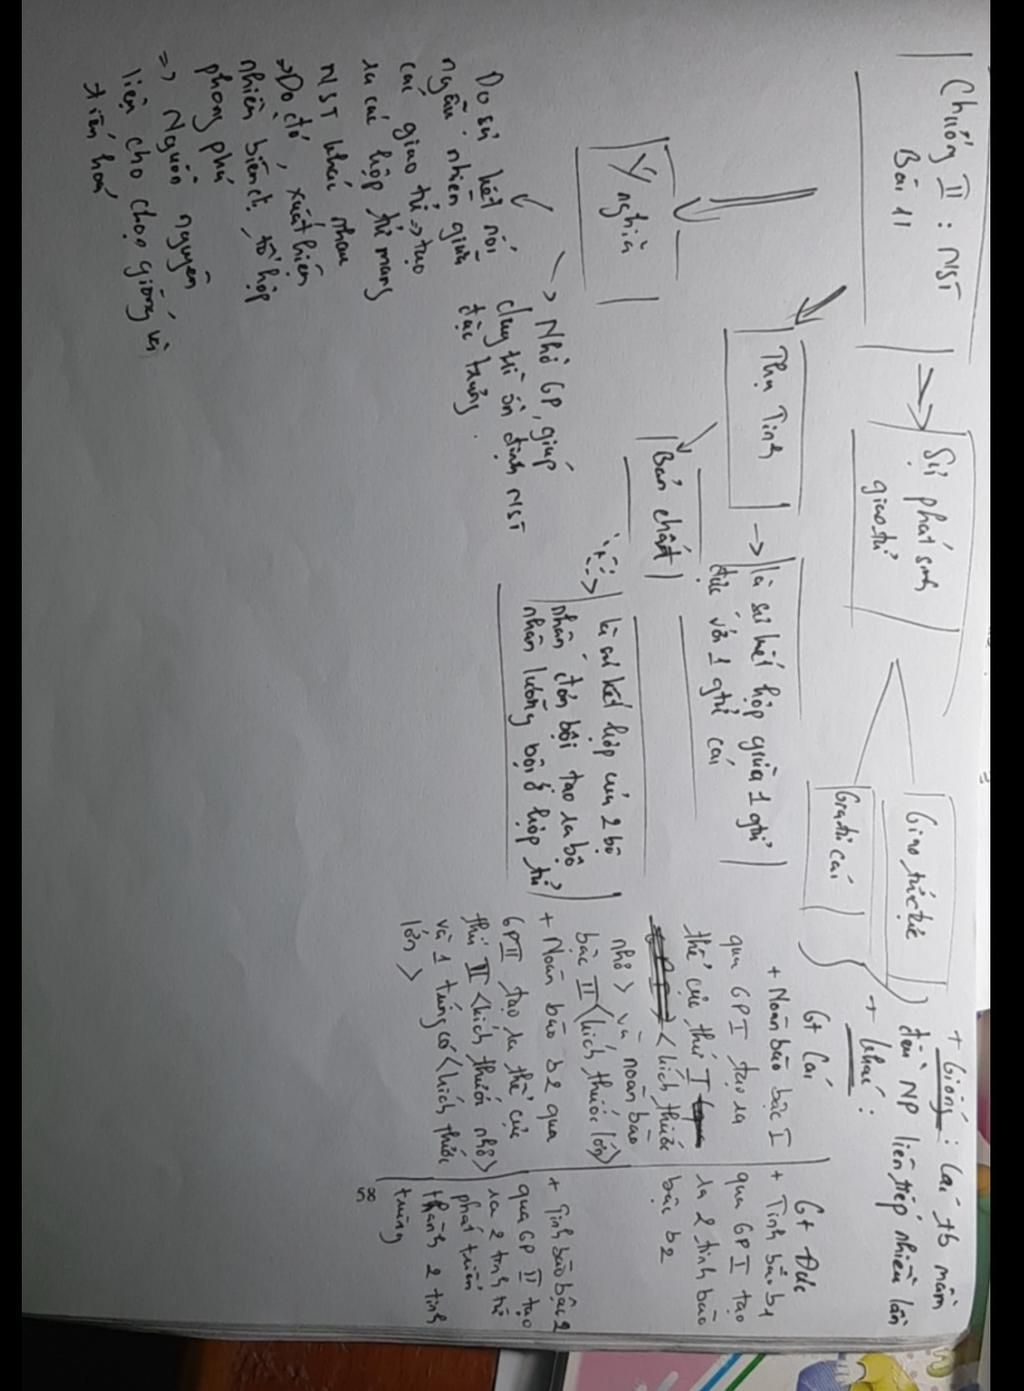 Chương II: NST
Bài 11
Sự phát sinh
giao tử
Giao tử đực
Giao tử cái
+ Giống: Các tb mầm
đều NP liên tiếp nhiều lần
+ Khác:
Gt Cái
+ Noãn bào bậc I
qua GP I tạo ra
thể cực thứ I
<kích thước
nhỏ> và noãn bào
bậc II <kích thước lớn>
+ Noãn bào b2 qua
GP II tạo ra thể cực
thứ II <kích thước nhỏ>
và 1 <kích thước
lớn>
Gt Đực
+ Tinh bào b1
qua GP I tạo
ra 2 tinh bào
bậc b2
+ Tinh bào bậc 2
qua GP II tạo
ra 2 tinh tử
phát triển
thành 2 tinh
trùng
Thụ Tinh
là sự kết hợp giữa 1 gtử
đực với 1 gtử cái
Bản chất
là sự kết hợp của 2 bộ
nhân đơn bội tạo ra bộ
nhân lưỡng bội ở hợp tử
Ý
nghĩa
Nhờ GP, giúp
duy trì ổn định NST
đặc trưng.
Do sự kết nối
ngẫu nhiên giữa
các giao tử => tạo
ra các hợp tử mang
NST khác nhau
=> Do đó, xuất hiện
nhiều biến dị tổ hợp
phong phú
=> Nguồn nguyên
liệu cho chọn giống và
tiến hoá
58